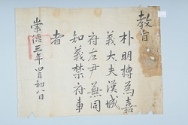 教旨
朴明摶爲嘉
義大夫漢城
府左尹兼同
知義禁府事
者
崇德三年四月初八日